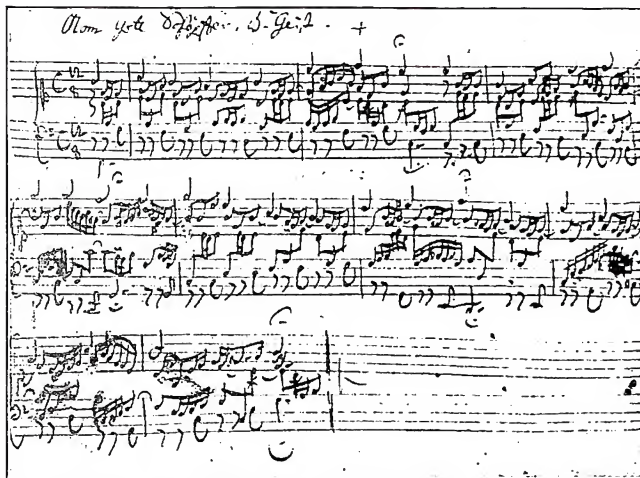 Kom Gott Schöpffer, H. Geist.